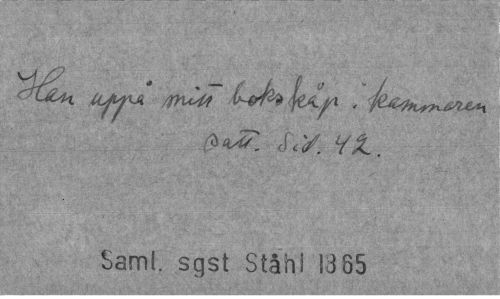 Han uppå mitt bokskåp i kammaren
satt. Sid. 42.
Saml. sgst Ståhl 1865